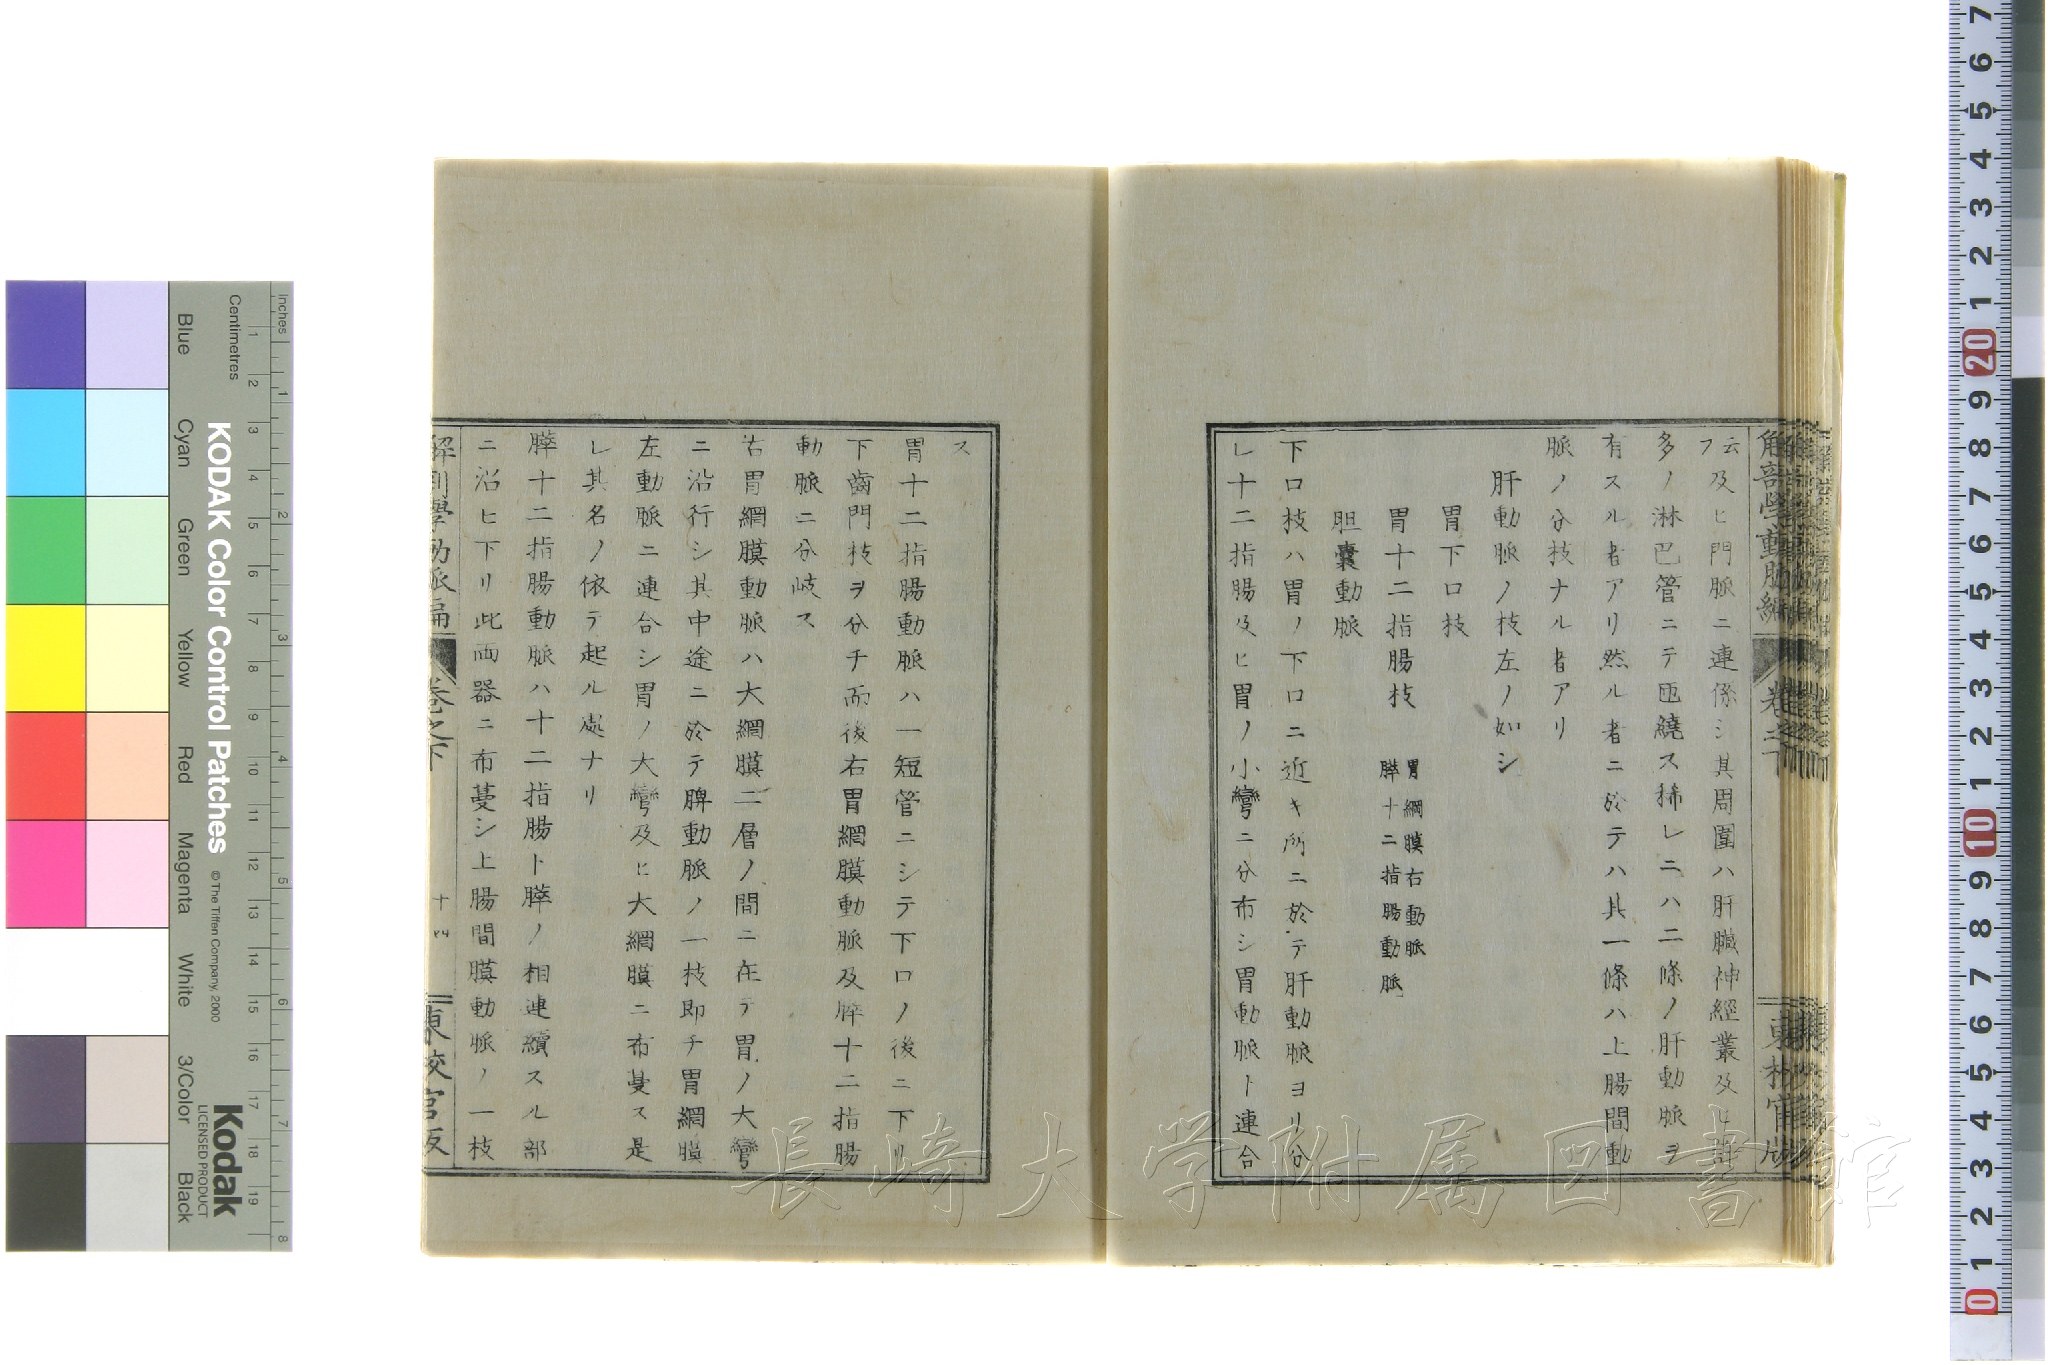 云フ及ヒ門脈ニ連係シ其周圍ハ肝臓神經叢及ヒ許
多ノ淋巴管ニテ匝繞ス稀レニハ二條ノ肝動脈ヲ
有スル者アリ然ル者ニ於テハ其一條ハ上腸間動
脈ノ分枝ナル者アリ
肝動脈ノ枝左ノ如シ
胃下口枝
胃十二指腸枝
胃網膜右動脈
膵十二指腸動脈
胆嚢動脈
下口枝ハ胃ノ下口ニ近キ所ニ於テ肝動脈ヨリ分
レ十二指腸及ヒ胃ノ小彎ニ分布シ胃動脈ト連合
ス
胃十二指腸動脈ハ一短管ニシテ下口ノ後ニ下リ
下齒門枝ヲ分チ而後右胃網膜動脈及膵十二指腸
動脈ニ分岐ス
右胃網膜動脈ハ大網膜二層ノ間ニ在テ胃ノ大彎
ニ沿行シ其中途ニ於テ脾動脈ノ一枝即チ胃網膜
左動脈ニ連合シ胃ノ大彎及ヒ大網膜ニ布蔓ス是
レ其名ノ依テ起ル處ナリ
膵十二指腸動脈ハ十二指腸ト膵ノ相連續スル部
ニ沿ヒ下リ此両器ニ布蔓シ上腸間膜動脈ノ一枝
解剖學動脈編 卷之下 十四 東校官版
長崎大学附属図書館
KODAK Color Control Patches
© The Tiffen Company, 2000
Kodak
LICENSED PRODUCT
Inches
Centimetres
Blue Cyan Green Yellow Red Magenta White 3/Color Black